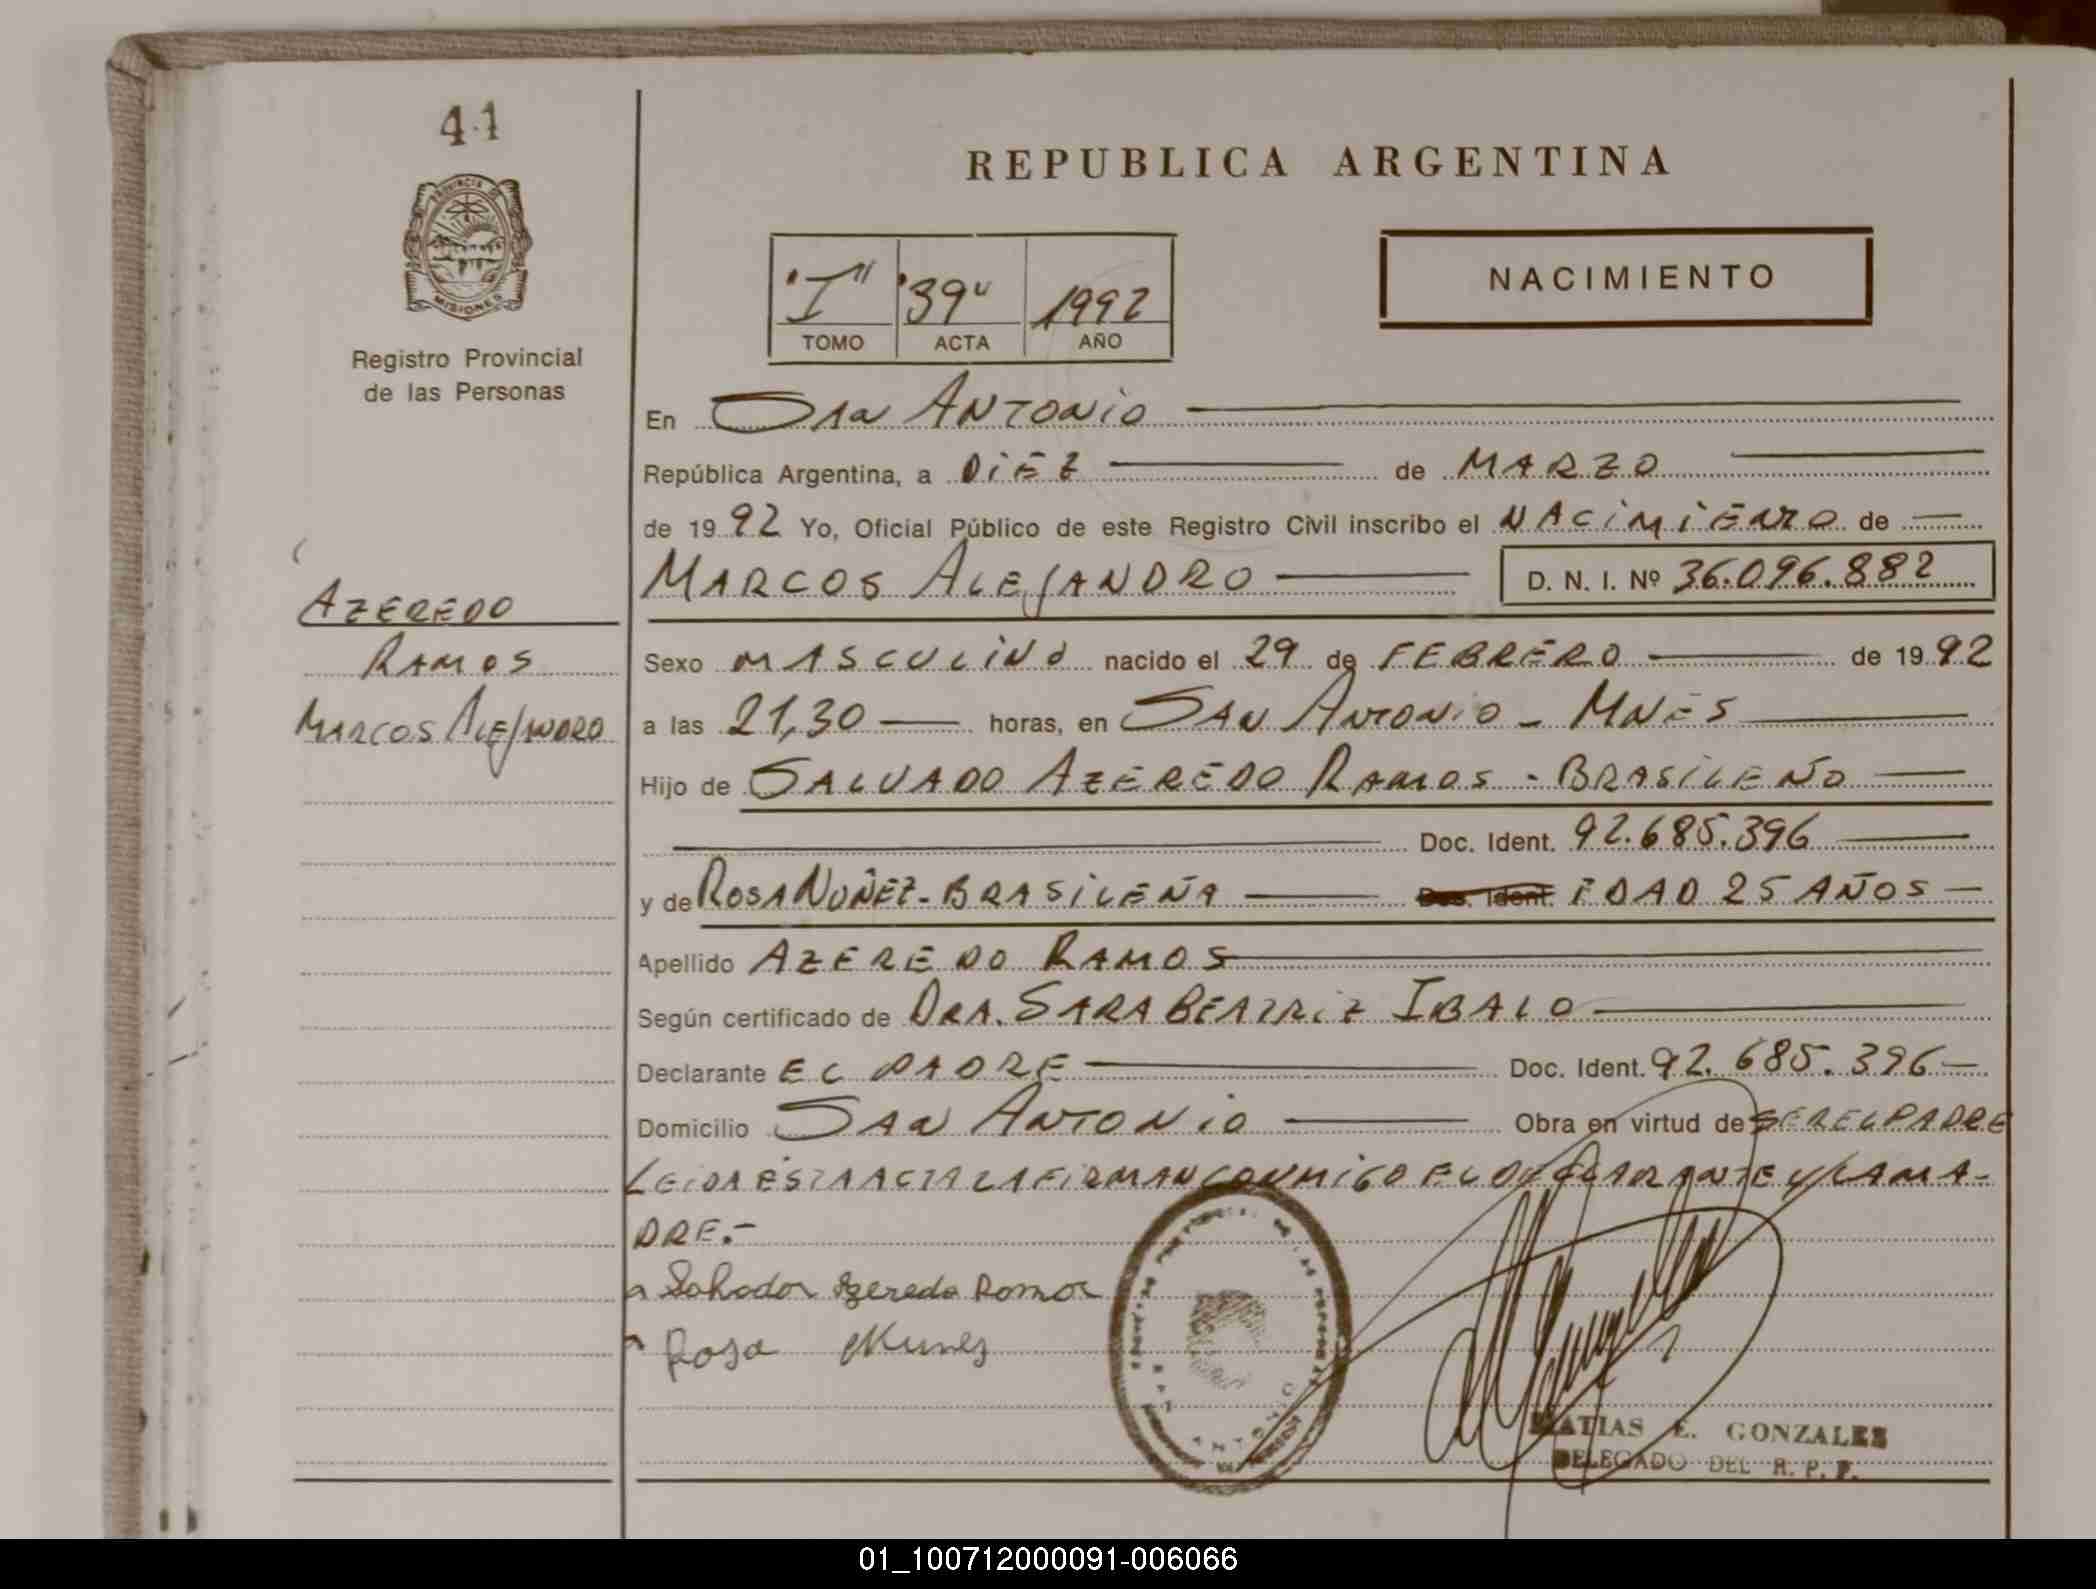 41
REPUBLICA ARGENTINA
PROVINCIA DE
MISIONES
Registro Provincial
de las Personas
"I" "39" 1992
TOMO ACTA AÑO
NACIMIENTO
En San Antonio
República Argentina, a DIEZ de MARZO
de 1992 Yo, Oficial Público de este Registro Civil inscribo el NACIMIENTO de
MARCOS ALEJANDRO D. N. I. Nº 36.096.882
AZEREDO
RAMOS
MARCOS ALEJANDRO
Sexo MASCULINO nacido el 29 de FEBRERO de 1992
a las 21,30 horas, en SAN ANTONIO - MNES
Hijo de SALVADO AZEREDO RAMOS - BRASILEÑO
Doc. Ident. 92.685.396
y de ROSA NUÑEZ - BRASILEÑA Doc. Ident. EDAD 25 AÑOS
Apellido AZEREDO RAMOS
Según certificado de DRA. SARA BEATRIZ IBALO
Declarante EL PADRE Doc. Ident. 92.685.396
Domicilio SAN ANTONIO Obra en virtud de SER EL PADRE
LEIDA ESTA ACTA LA FIRMAN CONMIGO EL DECLARANTE Y LA MA-
DRE.-
Salvador Azeredo Ramos
Rosa Nunes
SAN ANTONIO
MATIAS E. GONZALES
DELEGADO DEL R. P. P.
01_100712000091-006066